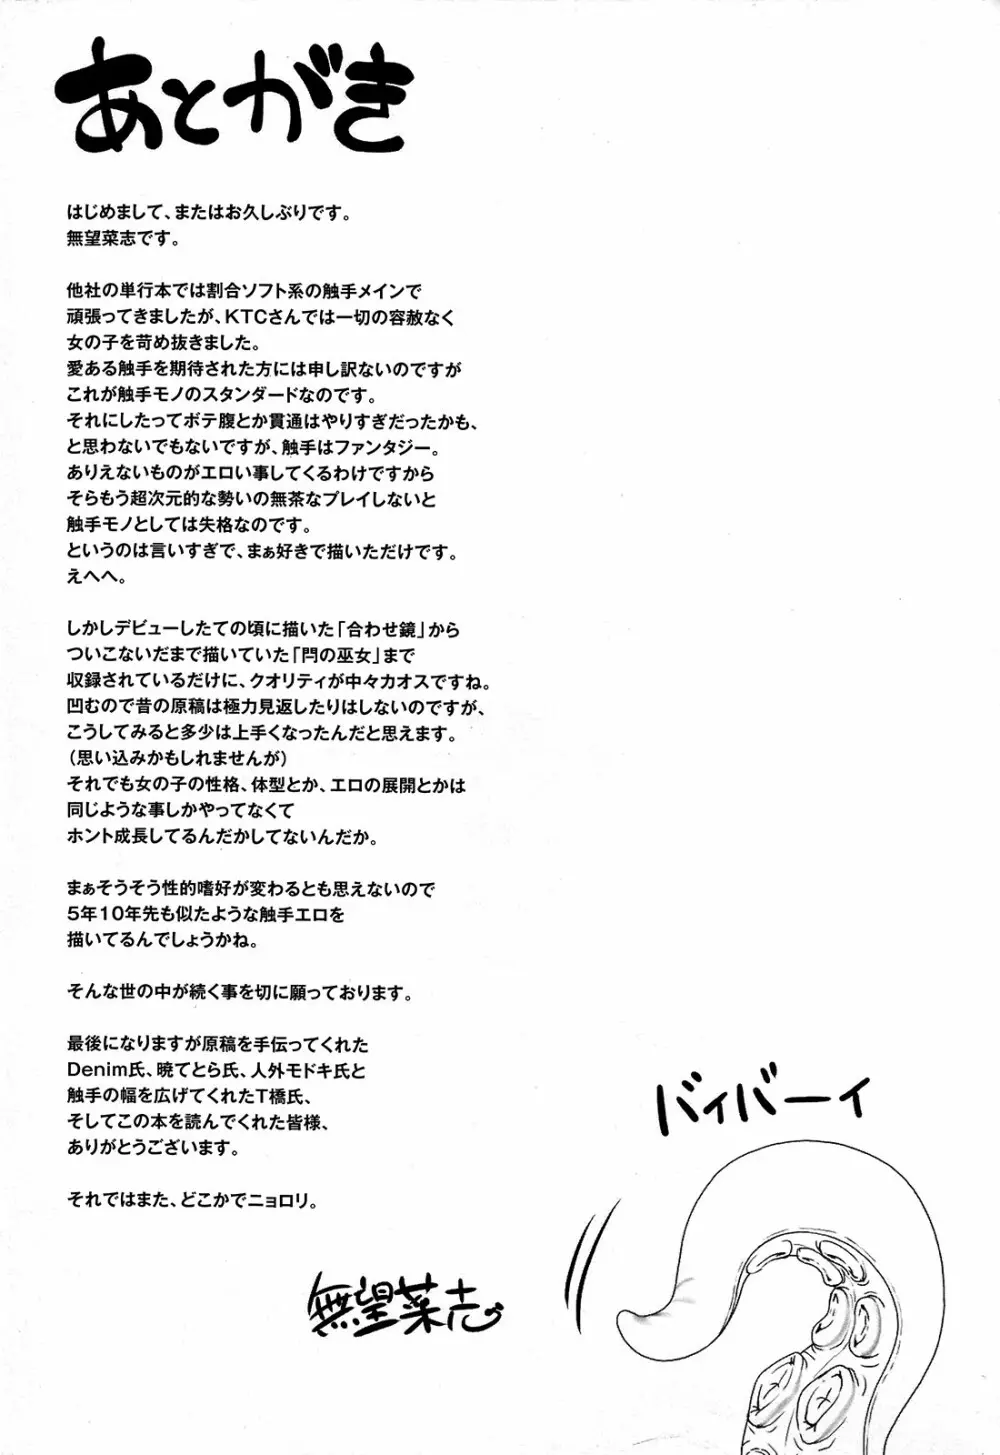 あとがき
はじめまして、またはお久しぶりです。
無望菜志です。
他社の単行本では割合ソフト系の触手メインで
頑張ってきましたが、KTCさんでは一切の容赦なく
女の子を苛め抜きました。
愛ある触手を期待された方には申し訳ないのですが
これが触手モノのスタンダードなのです。
それにしたってボテ腹とか貫通はやりすぎだったかも、
と思わないでもないですが、触手はファンタジー。
ありえないものがエロい事してくるわけですから
そらもう超次元的な勢いの無茶なプレイしないと
触手モノとしては失格なのです。
というのは言いすぎで、まぁ好きで描いただけです。
えへへ。
しかしデビューしたての頃に描いた「合わせ鏡」から
ついこないだまで描いていた「閂の巫女」まで
収録されているだけに、クオリティが中々カオスですね。
凹むので昔の原稿は極力見返したりはしないのですが、
こうしてみると多少は上手くなったんだと思えます。
(思い込みかもしれませんが)
それでも女の子の性格、体型とか、エロの展開とかは
同じような事しかやってなくて
ホント成長してるんだかしてないんだか。
まぁそうそう性的嗜好が変わるとも思えないので
5年10年先も似たような触手エロを
描いてるんでしょうかね。
そんな世の中が続く事を切に願っております。
最後になりますが原稿を手伝ってくれた
Denim氏、暁てとら氏、人外モドキ氏と
触手の幅を広げてくれたT橋氏、
そしてこの本を読んでくれた皆様、
ありがとうございます。
それではまた、どこかでニョロリ。
無望菜志
バイバーイ